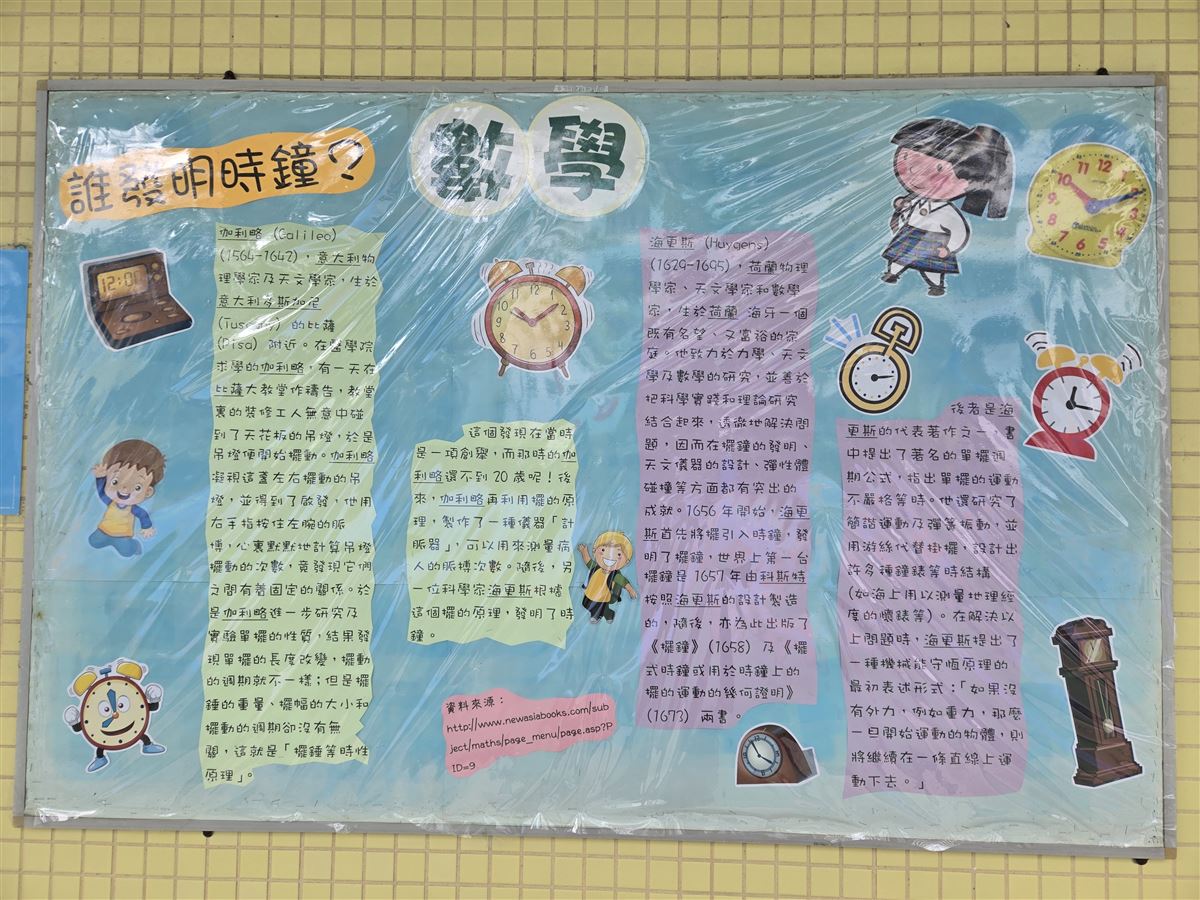 誰發明時鐘？
數學
伽利略 (Galileo)
(1564-1642)，意大利物
理學家及天文學家，生於
意大利多斯加尼
(Tuscany) 的比薩
(Pisa) 附近。在醫學院
求學的伽利略，有一天在
比薩大教堂作禱告，教堂
裏的裝修工人無意中碰
到了天花板的吊燈，於是
吊燈便開始擺動。伽利略
凝視這盞左右擺動的吊
燈，並得到了啟發，他用
右手指按住左腕的脈
搏，心裏默默地計算吊燈
擺動的次數，竟發現它們
之間有着固定的關係。於
是伽利略進一步研究及
實驗單擺的性質，結果發
現單擺的長度改變，擺動
的週期就不一樣；但是擺
錘的重量、擺幅的大小和
擺動的週期卻沒有無
關，這就是「擺錘等時性
原理」。
這個發現在當時
是一項創舉，而那時的伽
利略還不到 20 歲呢！後
來，伽利略再利用擺的原
理，製作了一種儀器「計
脈器」，可以用來測量病
人的脈搏次數。隨後，另
一位科學家海更斯根據
這個擺的原理，發明了時
鐘。
資料來源：
http://www.newasiabooks.com/sub
ject/maths/page_menu/page.asp?P
ID=9
海更斯 (Huygens)
(1629-1695)，荷蘭物理
學家、天文學家和數學
家，生於荷蘭 海牙一個
既有名望、又富裕的家
庭。他致力於力學、天文
學及數學的研究，並善於
把科學實踐和理論研究
結合起來，透徹地解決問
題，因而在擺鐘的發明、
天文儀器的設計、彈性體
碰撞等方面都有突出的
成就。1656 年開始，海更
斯首先將擺引入時鐘，發
明了擺鐘，世界上第一台
擺鐘是 1657 年由科斯特
按照海更斯的設計製造
的，隨後，亦為此出版了
《擺鐘》(1658) 及《擺
式時鐘或用於時鐘上的
擺的運動的幾何證明》
(1673) 兩書。
後者是海
更斯的代表著作之一，書
中提出了著名的單擺週
期公式，指出單擺的運動
不嚴格等時。他還研究了
簡諧運動及彈簧振動，並
用游絲代替掛擺，設計出
許多種鐘錶等時結構
(如海上用以測量地理經
度的懷錶等)。在解決以
上問題時，海更斯提出了
一種機械能守恆原理的
最初表述形式：「如果沒
有外力，例如重力，那麼
一旦開始運動的物體，則
將繼續在一條直線上運
動下去。」
12:00